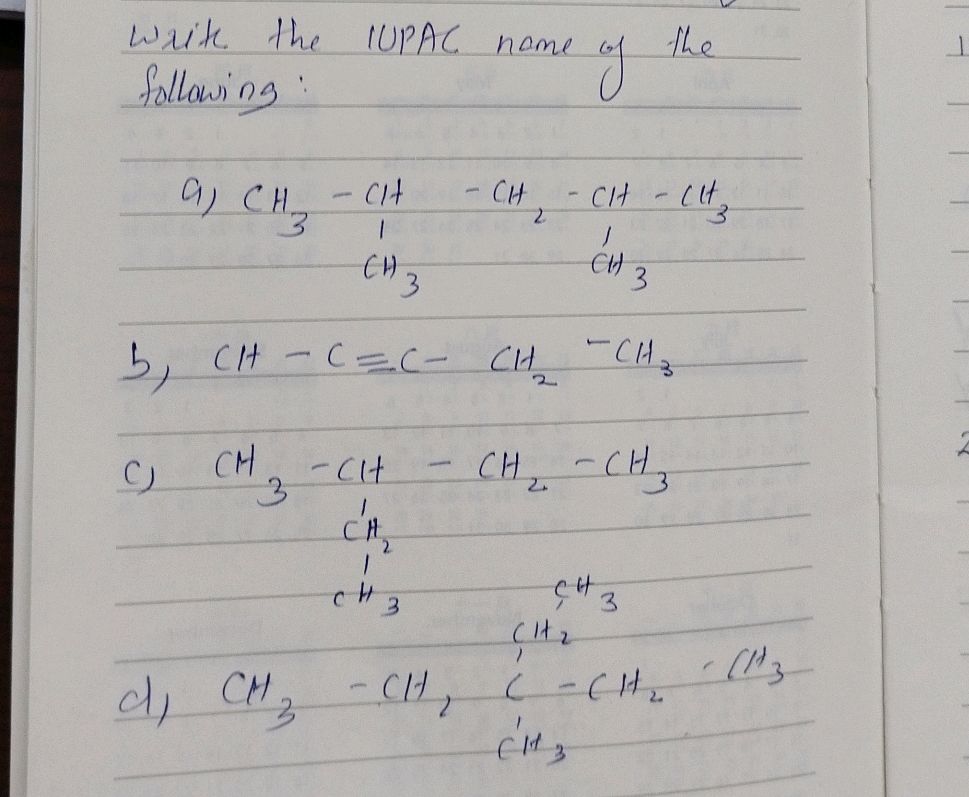 Write the IUPAC name of the
following :
a) CH3 - CH - CH2 - CH - CH3
CH3 CH3
b, CH - C ≡ C - CH2 - CH3
c) CH3 - CH - CH2 - CH3
CH2
CH3
CH3
CH2
d, CH3 - CH2 C - CH2 - CH3
CH3
1
2